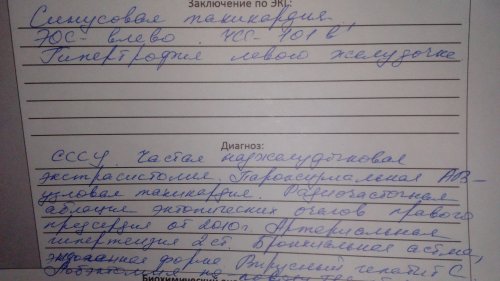 Заключение по ЭКГ:
Синусовая тахикардия
ЭОС - влево. ЧСС - 101 в'
Гипертрофия левого желудочка
Диагноз:
СССУ. Частая наджелудочковая
экстрасистолия. Пароксизмальная АВ-
узловая тахикардия. Радиочастотная
аблация эктопических очагов правого
предсердия от 2010г. Артериальная
гипертензия 2 ст. Бронхиальная астма,
эндогенная форма. Вирусный гепатит С.
Лобэктомия
Биохимический